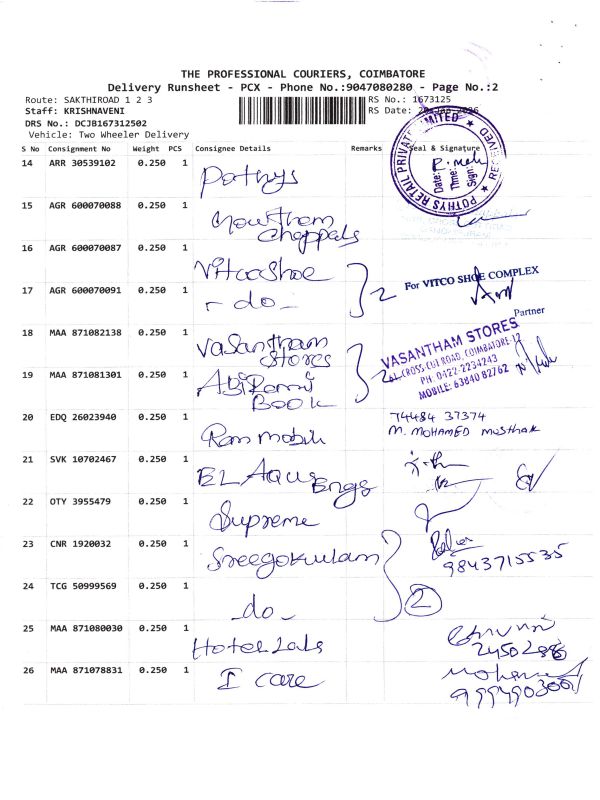 THE PROFESSIONAL COURIERS, COIMBATORE
Delivery Runsheet - PCX - Phone No.:9047080280 - Page No.:2
Route: SAKTHIROAD 1 2 3
RS No.: 1673125
Staff: KRISHNAVENI
RS Date:
DRS No.: DCJB167312502
Vehicle: Two Wheeler Delivery
S No Consignment No Weight PCS Consignee Details Remarks Seal & Signature
14 ARR 30539102 0.250 1 Pothys
POTHYS RETAIL PRIVATE LIMITED
RECEIVED
Date:
Time:
Sign:
15 AGR 600070088 0.250 1 Gowtham
Chappals
16 AGR 600070087 0.250 1 Vitco Shoe
2 For VITCO SHOE COMPLEX
17 AGR 600070091 0.250 1 - do -
Partner
18 MAA 871082138 0.250 1 Vasantham
Stores
VASANTHAM STORES
CROSS CUT ROAD, COIMBATORE-12
PH: 0422-2234243
MOBILE: 63840 82762
19 MAA 871081301 0.250 1 Abirami
Book
2
20 EDQ 26023940 0.250 1 Ram mobile
74484 37374
M. MOHAMED MUSTHAK
21 SVK 10702467 0.250 1 EL Aqua
Engs
22 OTY 3955479 0.250 1 Supreme
23 CNR 1920032 0.250 1 Sreegokulam
9843715535
24 TCG 50999569 0.250 1 - do -
2
25 MAA 871080030 0.250 1 Hotel
26 MAA 871078831 0.250 1 I care